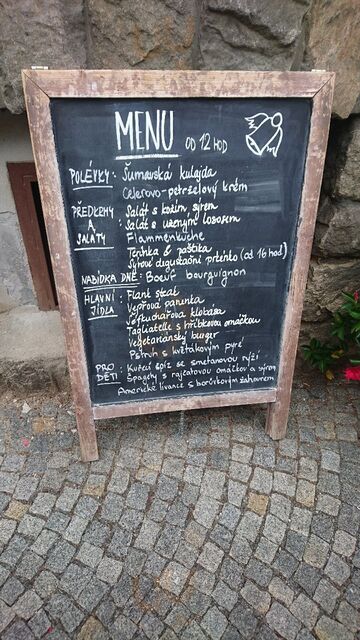 MENU OD 12 HOD
POLÉVKY: Šumavská kulajda
Celerovo-petrželový krém
PŘEDKRMY A SALÁTY: Salát s kozím sýrem
Salát s uzeným lososem
Flammenküche
Terinka & paštika
Sýrové degustační prkénko (od 16 hod)
NABÍDKA DNE: Boeuf bourguignon
HLAVNÍ JÍDLA: Flank steak
Vepřová panenka
Šéfkuchařova klobása
Tagliatelle s hříbkovou omáčkou
Vegetariánský burger
Pstruh s květákovým pyré
PRO DĚTI: Kuřecí špíz se smetanovou rýží
Špagety s rajčatovou omáčkou a sýrem
Americké lívance s borůvkovým žahourem